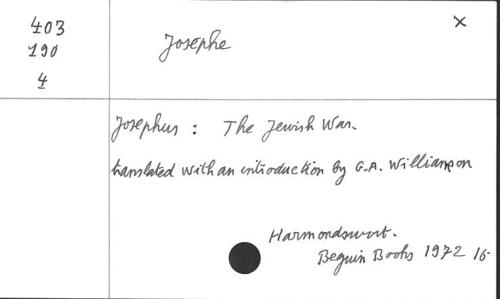 403
190
4
x
Josephe
Josephus : The Jewish War.
translated with an introduction by G.A. Williamson
Harmondswort.
Beguin Books 1972 16